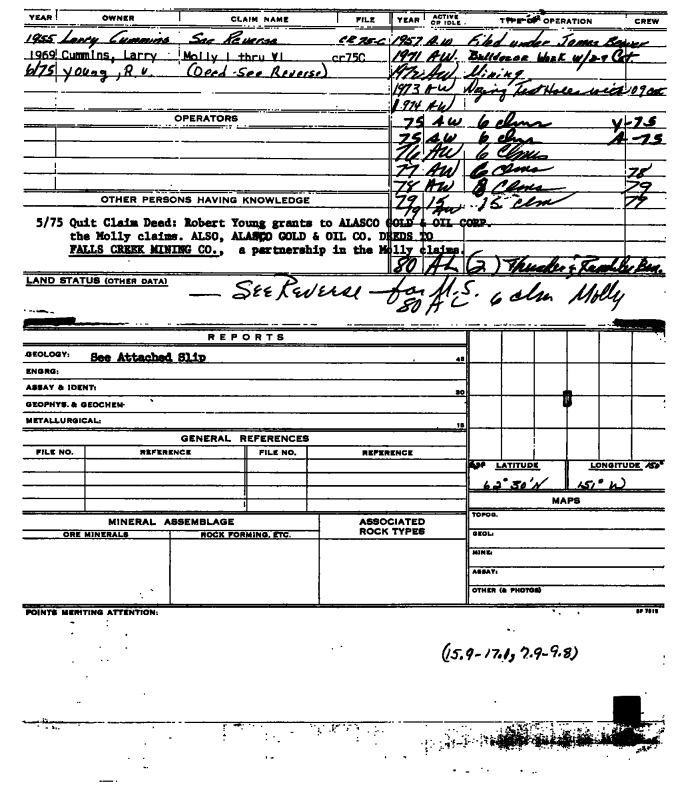 YEAR OWNER CLAIM NAME FILE YEAR ACTIVE OR IDLE TYPE OF OPERATION CREW
1955 Larry Cummins See Reverse CR 75-C 1957 A.W Filed under James Bower
1969 Cummins, Larry Molly I thru VI cr75C 1971 AW. Bulldozer Work W/2-9 Cat
6/75 Young, R V. (Deed-See Reverse) 1972 AW Mining
1973 AW Test Holes with
1974 AW
OPERATORS 75 AW 6 clms V-75
75 AW 6 clm A-75
76 AW 6 Clms
77 AW 6 Clms 78
78 AW 8 Clms 79
OTHER PERSONS HAVING KNOWLEDGE 79 15 15 clm 79
79 AW
5/75 Quit Claim Dead: Robert Young grants to ALASCO GOLD & OIL CORP.
the Molly claims. ALSO, ALASCO GOLD & OIL CO. DEEDS TO
FALLS CREEK MINING CO., a partnership in the Molly claims.
80 AL (2)
LAND STATUS (OTHER DATA)
— SEE Reverse — for M.S.
80 AL 6 clm Molly
REPORTS
GEOLOGY: See Attached Slip 45
ENGRG:
ASSAY & IDENT: 30
GEOPHYS. & GEOCHEM
METALLURGICAL: 15
GENERAL REFERENCES
FILE NO. REFERENCE FILE NO. REFERENCE
LATITUDE LONGITUDE 150°
62° 30'N 151° W
MAPS
MINERAL ASSEMBLAGE ASSOCIATED ROCK TYPES TOPOG.
ORE MINERALS ROCK FORMING, ETC. GEOL:
MINE:
ASSAY:
OTHER (& PHOTOS)
POINTS MERITING ATTENTION:
(15.9-17.1, 7.9-9.8)